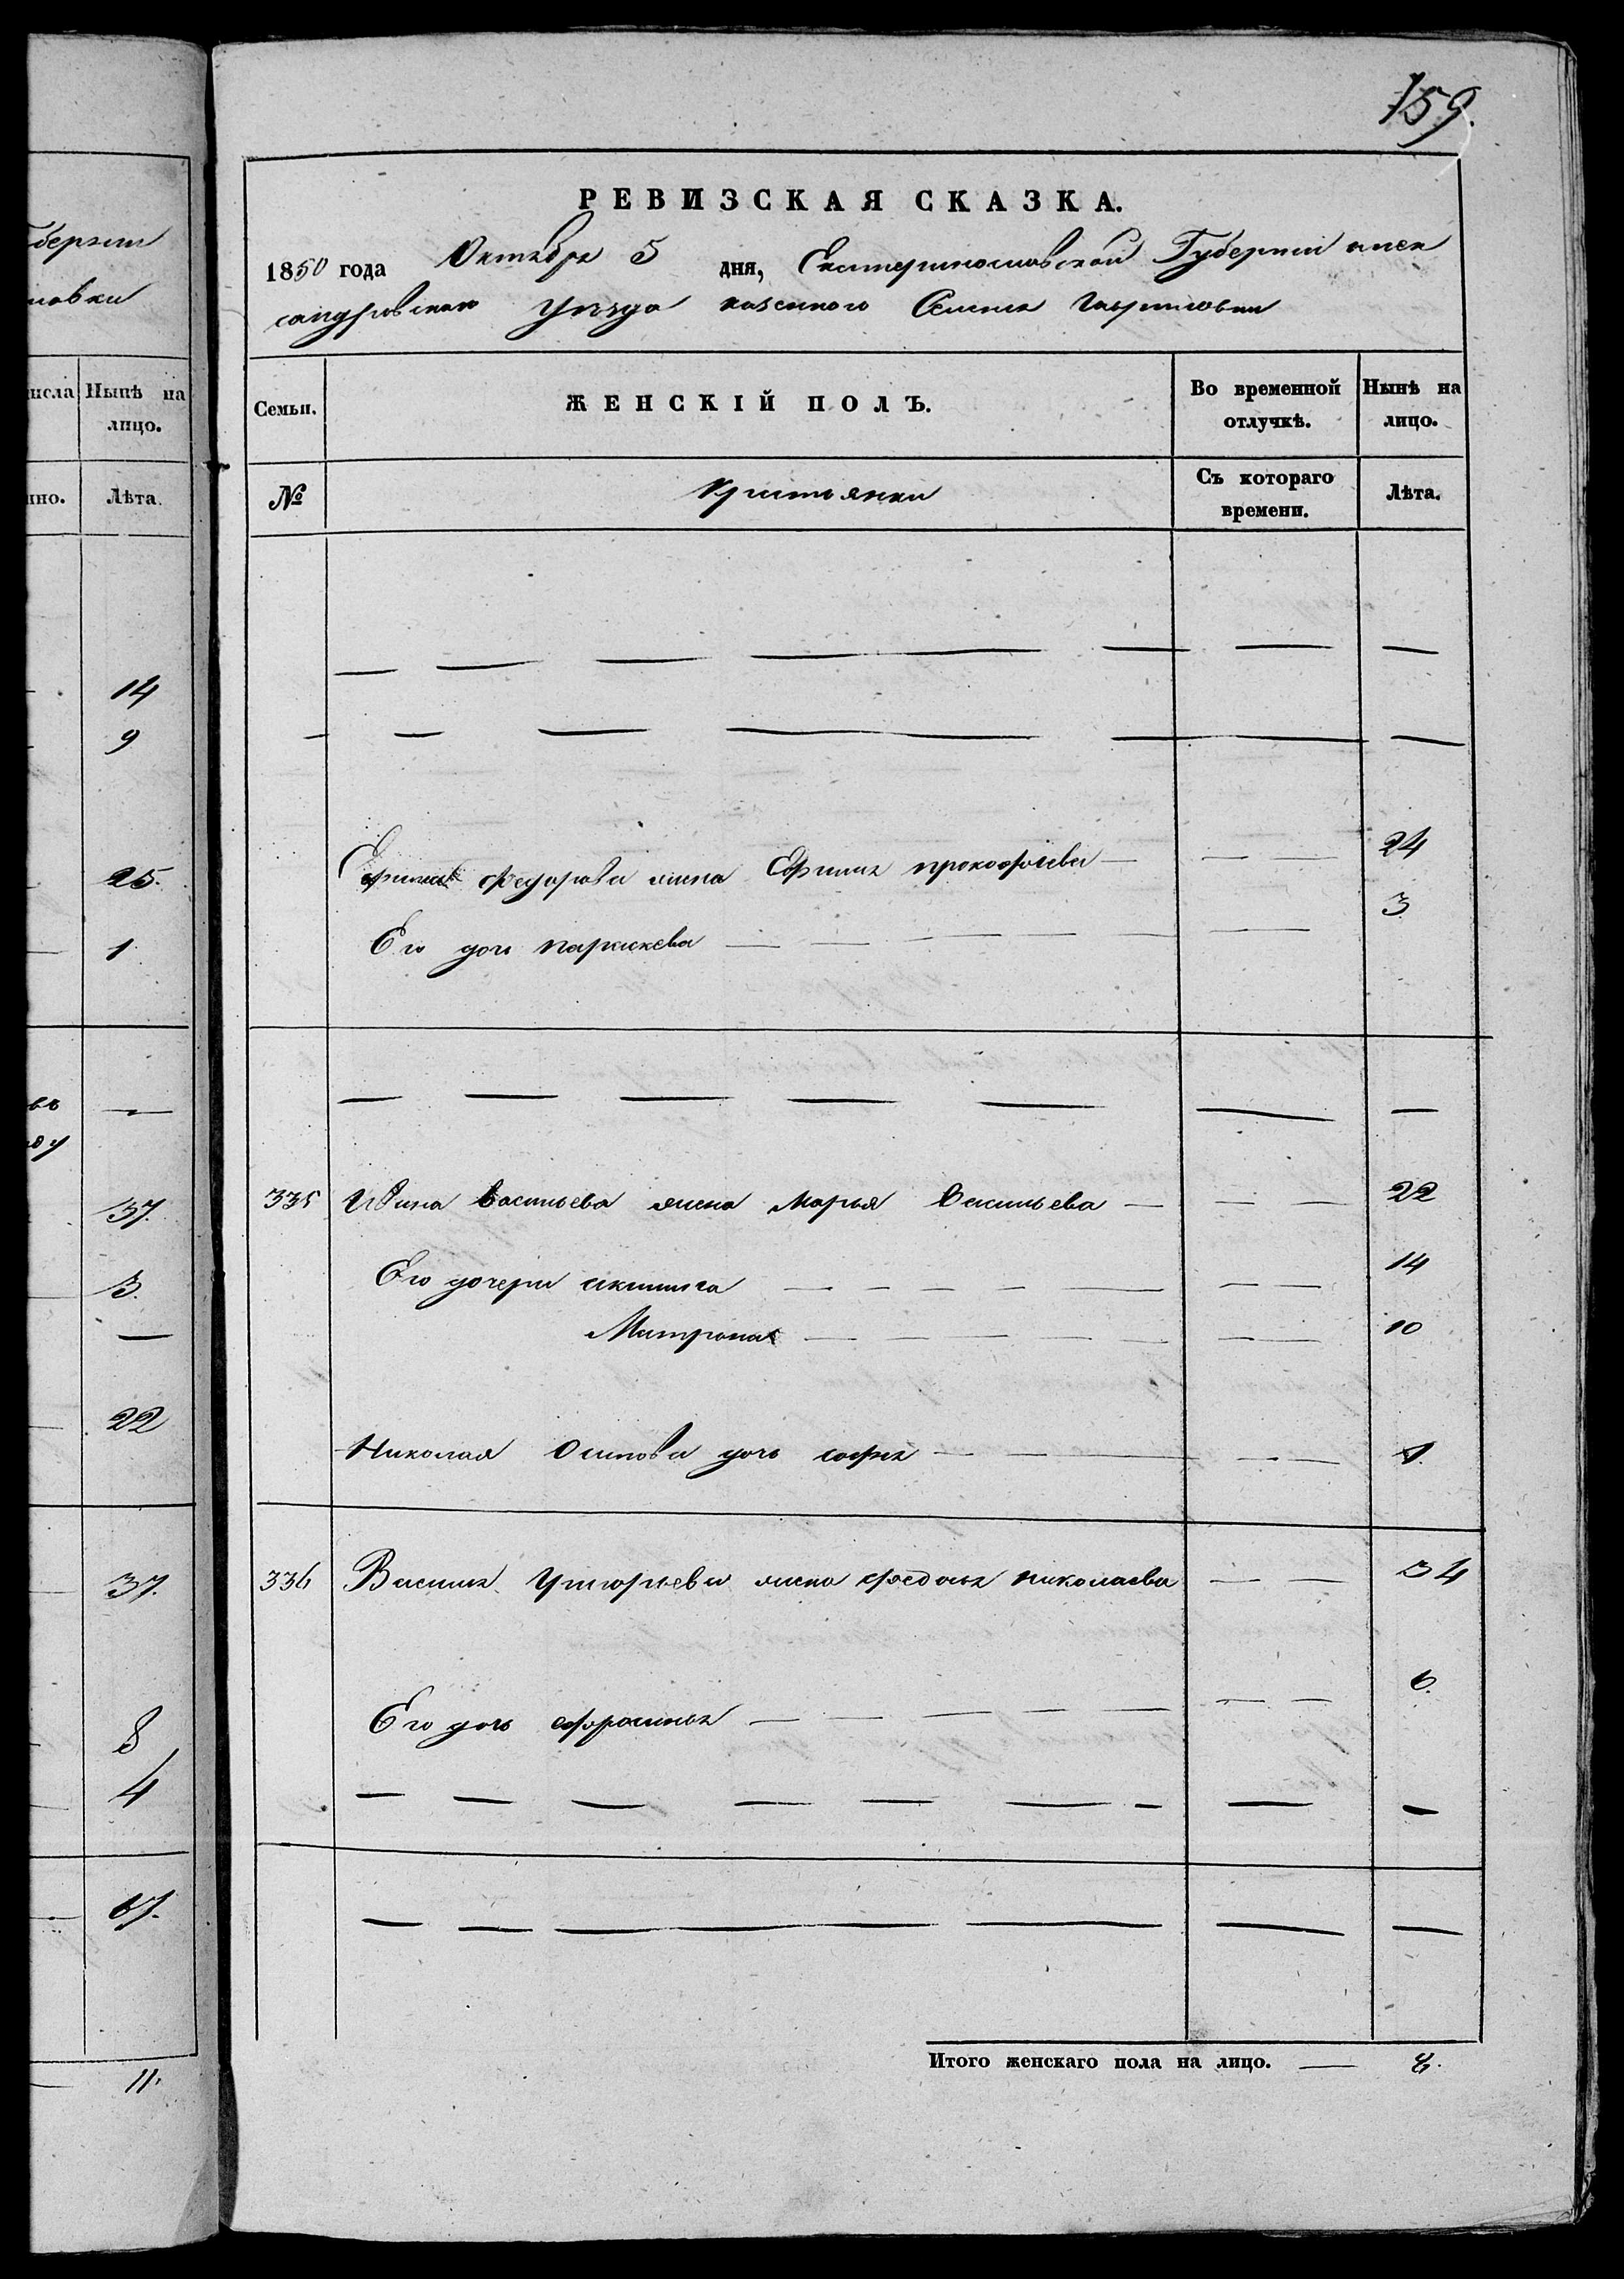 159.
РЕВИЗСКАЯ СКАЗКА.
1850 года Октября 5 дня, Екатеринославской Губернии алек
сандровскаго уѣзда казенного Селения Гавриловки
Семьи. ЖЕНСКІЙ ПОЛЪ. Во временной отлучкѣ. Нынѣ на лицо.
№ Крестьянки Съ котораго времени. Лѣта.
— — — — — — — —
— — — — — — —
Федорова жена Ефимия прокофиева — — — 24
Его дочь параскева — — — — — — 3
— — — — — — —
335 Ивана Васильева жена Марья Васильева — — — 22
Его дочери акилина — — — — — — — 14
Матрона — — — — — — — 10
Николая Осипова дочь софия — — — — — 1.
336 Василия Григорьева жена федосия николаева — — 34
Его дочь ефросиния — — — — — — — 6.
— — — — — — — — —
— — — — — —
Итого женскаго пола на лицо. — 8.
губернии
ловки
числа Нынѣ на
лицо.
нно. Лѣта.
14
9
25.
1.
—
37.
3.
—
22
37.
8
4
67.
11.